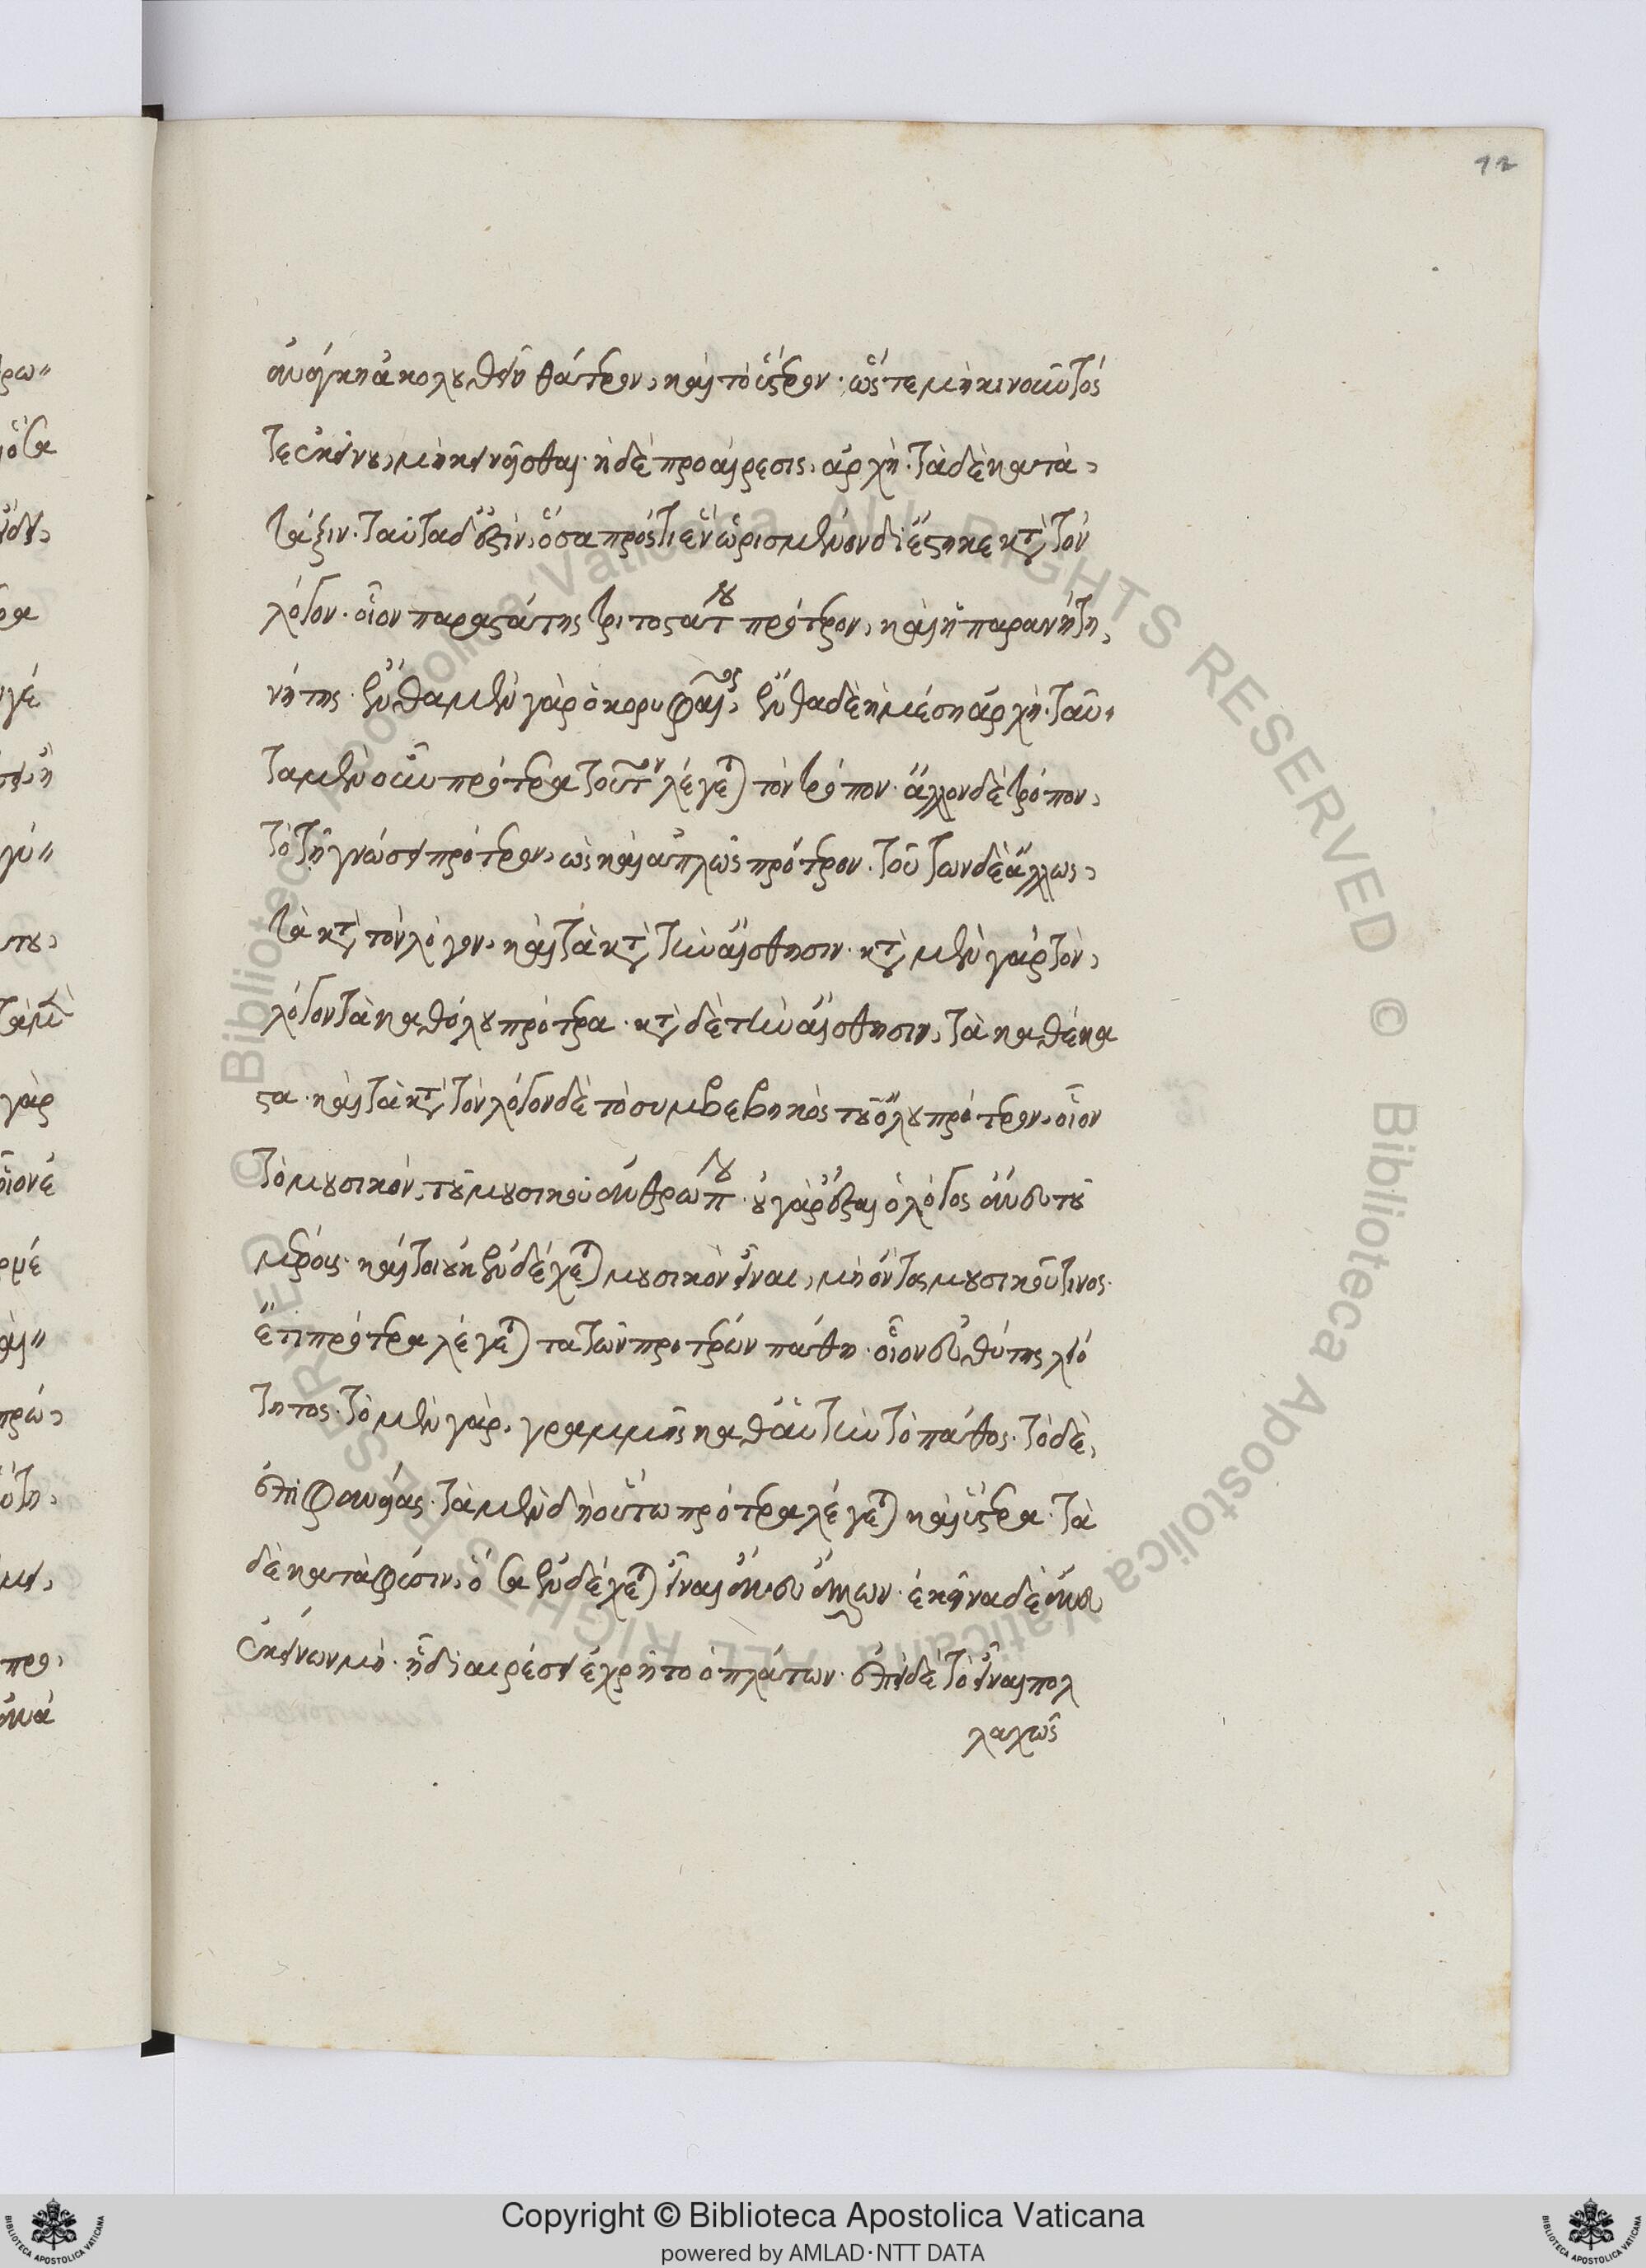 12
ἀνάγκη ἀκολουθεῖν θάτερον, καὶ τὸ ὕστερον· ὥστε μὴ κινοῦντός
τε ἐκείνου, μὴ κινεῖσθαι· ἡ δὲ προαίρεσις, ἀρχή· τὰ δὲ κατὰ,
τάξιν· ταῦτα δ' ἐστὶν, ὅσα πρός τι ἓν ὡρισμένον διέστηκε κατὰ τὸν
λόγον· οἷον παραστάτης τριτοστάτου πρότερον, καὶ ἡ παρανήτη,
νήτης· ἔνθα μὲν γὰρ ὁ κορυφαῖος, ἔνθα δὲ ἡ μέση ἀρχή· ταῦ"
τα μὲν οὖν πρότερα τοῦτον λέγεται τὸν τρόπον· ἄλλον δὲ τρόπον,
τὸ τῇ γνώσει πρότερον, ὡς καὶ ἁπλῶς πρότερον· τούτων δὲ ἄλλως,
τὰ κατὰ τὸν λόγον, καὶ τὰ κατὰ τὴν αἴσθησιν· κατὰ μὲν γὰρ τὸν,
λόγον τὰ καθόλου πρότερα· κατὰ δὲ τὴν αἴσθησιν, τὰ καθέκα
στα· καὶ τὰ κατὰ τὸν λόγον δὲ τὸ συμβεβηκὸς τοῦ ὅλου πρότερον, οἷον
τὸ μουσικόν, τοῦ μουσικοῦ ἀνθρώπου· οὐ γὰρ ἔσται ὁ λόγος ἄνευ τοῦ
μέρους· καίτοι οὐκ ἐνδέχεται μουσικὸν εἶναι, μὴ ὄντος μουσικοῦ τινος·
ἔτι πρότερα λέγεται τὰ τῶν προτέρων πάθη· οἷον εὐθύτης λειό
τητος· τὸ μὲν γὰρ, γραμμῆς καθ' αὑτὴν τὸ πάθος· τὸ δὲ,
ἐπιφανείας· τὰ μὲν δὴ οὕτω πρότερα λέγεται καὶ ὕστερα· τὰ
δὲ κατὰ φύσιν, ὅσα ἐνδέχεται εἶναι ἄνευ ἄλλων· ἐκεῖνα δὲ ἄνευ
ἐκείνων μή· ᾗ διαιρέσει ἐχρῆτο ὁ πλάτων· ἐπεὶ δὲ τὸ εἶναι πολ
λαχῶς
© Biblioteca Apostolica Vaticana ALL RIGHTS RESERVED © Biblioteca Apostolica Vaticana ALL RIGHTS RESERVED
Copyright © Biblioteca Apostolica Vaticana
powered by AMLAD·NTT DATA